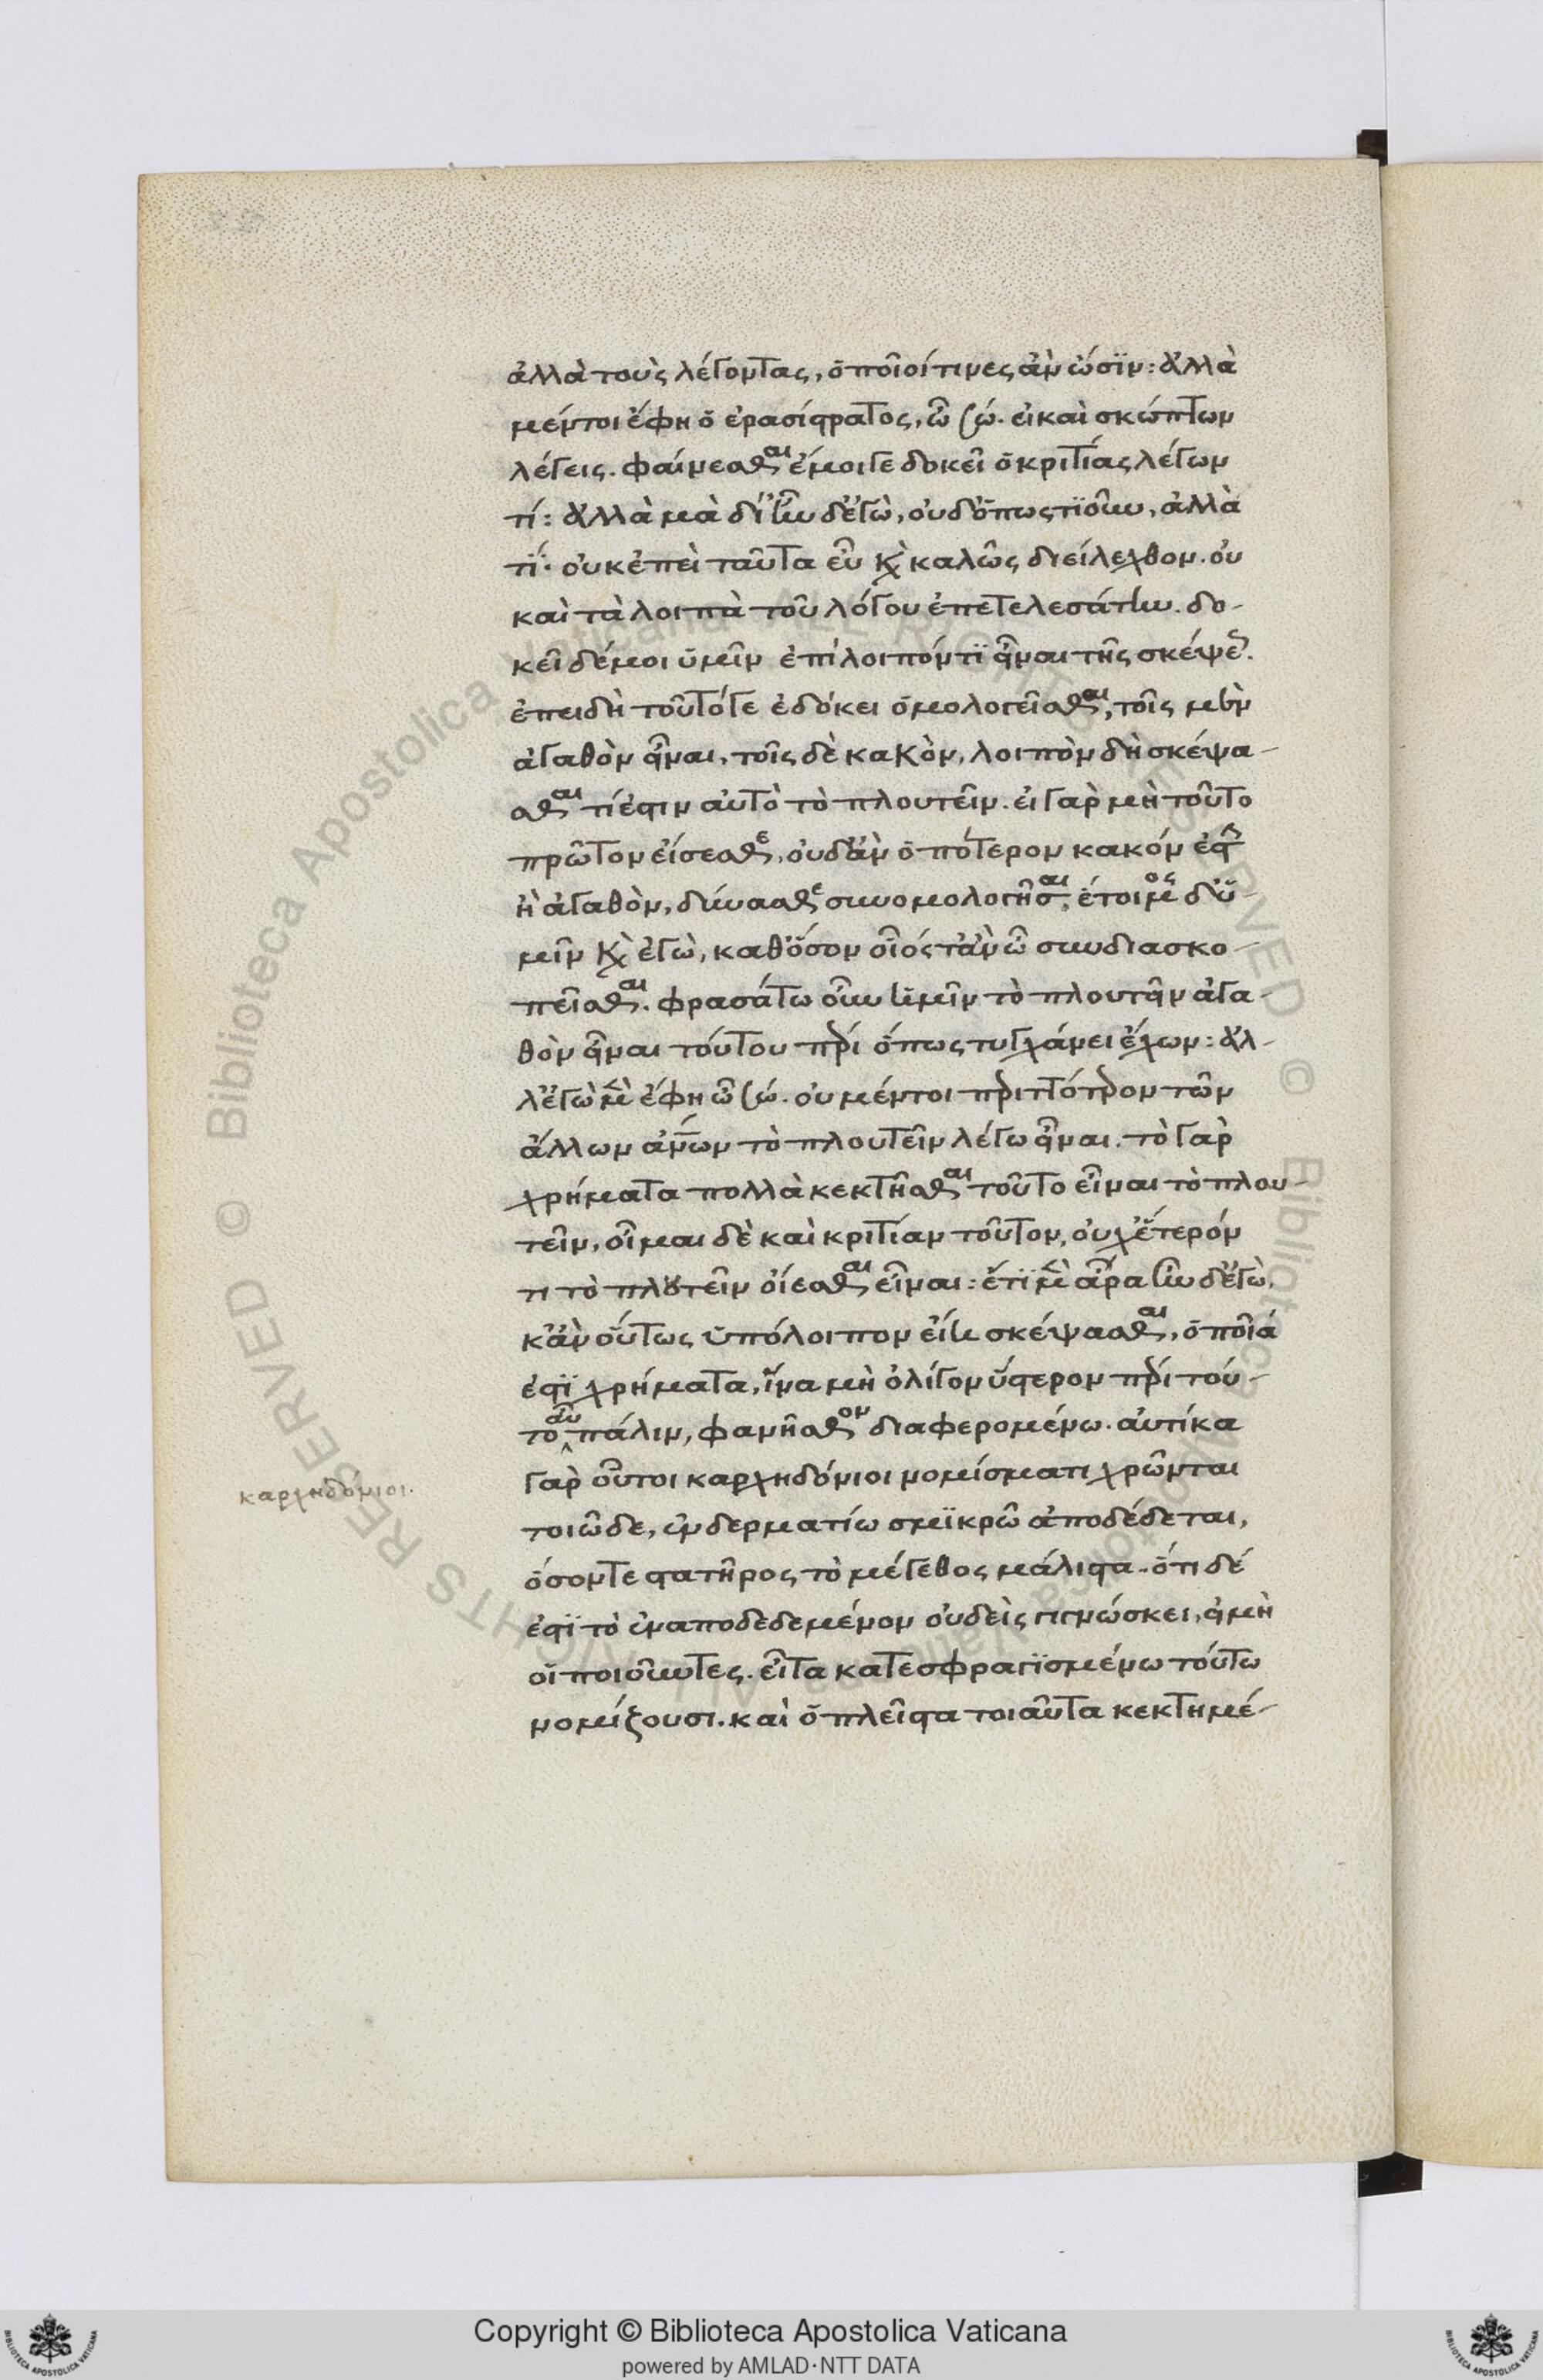 ἀλλὰ τοὺς λέγοντας, ὁποῖοί τινες ἂν ὦσϊν: ἀλλὰ
μέντοι ἔφη ὁ ἐρασίστρατος, ὦ σώ. εἰ καὶ σκώπτων
λέγεις. φαίνεσθαι ἔμοιγε δοκεῖ ὁ κριτίας λέγων
τί: ἀλλὰ μὰ δί' ἦν δ' ἐγὼ, οὐδ' ὅπως τϊοῦν, ἀλλὰ
τϊ· οὐκ ἐπεὶ ταῦτα εὖ κὴ καλῶς διείλεχθον. οὐ
καὶ τὰ λοιπὰ τοῦ λόγου ἐπετελεσάτην. δο-
κεῖ δέ μοι ὑμῖν ἐπίλοιπόν τϊ εἶναι τῆς σκέψεως.
ἐπειδὴ τοῦτό γε ἐδόκει ὁμολογεῖσθαι, τοῖς μὲν
ἀγαθὸν εἶναι, τοῖς δὲ κακὸν, λοιπὸν δὴ σκέψα-
σθαι τί ἐστιν αὐτὸ τὸ πλουτεῖν. εἰ γὰρ μὴ τοῦτο
πρῶτον εἴσεσθε, οὐδ' ἂν ὁπότερον κακόν ἐστιν
ἢ ἀγαθὸν, δύνασθε συνομολογῆσαι, ἕτοιμος δ' ὑ-
μῖν κὴ ἐγὼ, καθ' ὅσον οἷός τ' ἂν ὦ συνδιασκο-
πεῖσθαι. φρασάτω οὖν ἡμῖν τὸ πλουτεῖν ἀγα-
θὸν εἶναι τούτου πέρι ὅπως τυγχάνει ἔχων: ἀλ-
λ' ἐγὼ μὲν ἔφη ὦ σώ. οὐ μέντοι περιττότερον τῶν
ἄλλων ἀνων τὸ πλουτεῖν λέγω εἶναι. τὸ γὰρ
χρήματα πολλὰ κεκτῆσθαι τοῦτο εἶναι τὸ πλου-
τεῖν, οἶμαι δὲ καὶ κριτίαν τοῦτον, οὐχ ἕτερόν
τι τὸ πλουτεῖν οἴεσθαι εἶναι: ἔτϊ μὲν ἆρα ἦν δ' ἐγὼ,
κἂν οὕτως ὑπόλοιπον εἴη σκέψασθαι, ὁποῖά
ἐστϊ χρήματα, ἵνα μὴ ὀλίγον ὕστερον πέρι τού-
του αὖ πάλιν, φανῆσθον διαφερομένω. αὐτίκα
γὰρ οὗτοι καρχηδόνιοι νομίσματι χρῶνται
καρχηδόνιοι.
τοιῶδε, ἐν δερματίω σμϊκρῶ ἀποδέδεται,
ὅσον τε στατῆρος τὸ μέγεθος μάλιστα. ὅτι δέ
ἐστϊ τὸ ἐναποδεδεμένον οὐδεὶς γιγνώσκει, εἰ μὴ
οἱ ποιοῦντες. εἶτα κατεσφραγϊσμένω τούτω
νομίζουσι. καὶ ὁ πλεῖστα τοιαῦτα κεκτημέ-
Copyright © Biblioteca Apostolica Vaticana
powered by AMLAD·NTT DATA